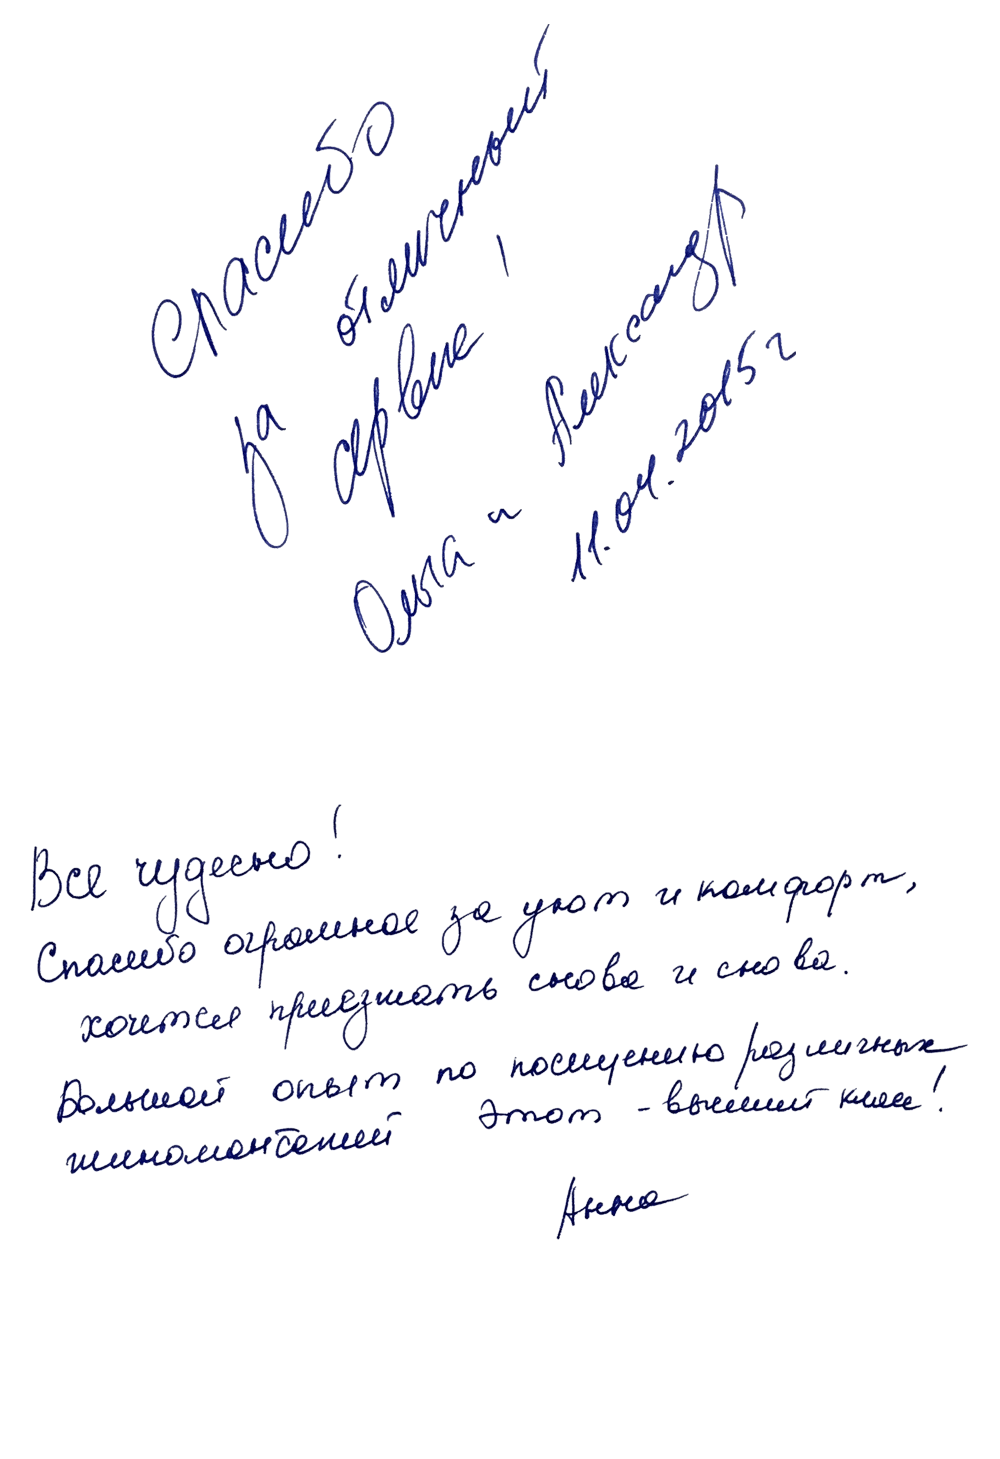 Спасибо
за отличный
сервис!
Ольга и Александр
11.04.2015г
Все чудесно!
Спасибо огромное за уют и комфорт,
хочется приезжать снова и снова.
Большой опыт по посещению различных
шиномонтажей этот - высший класс!
Анна